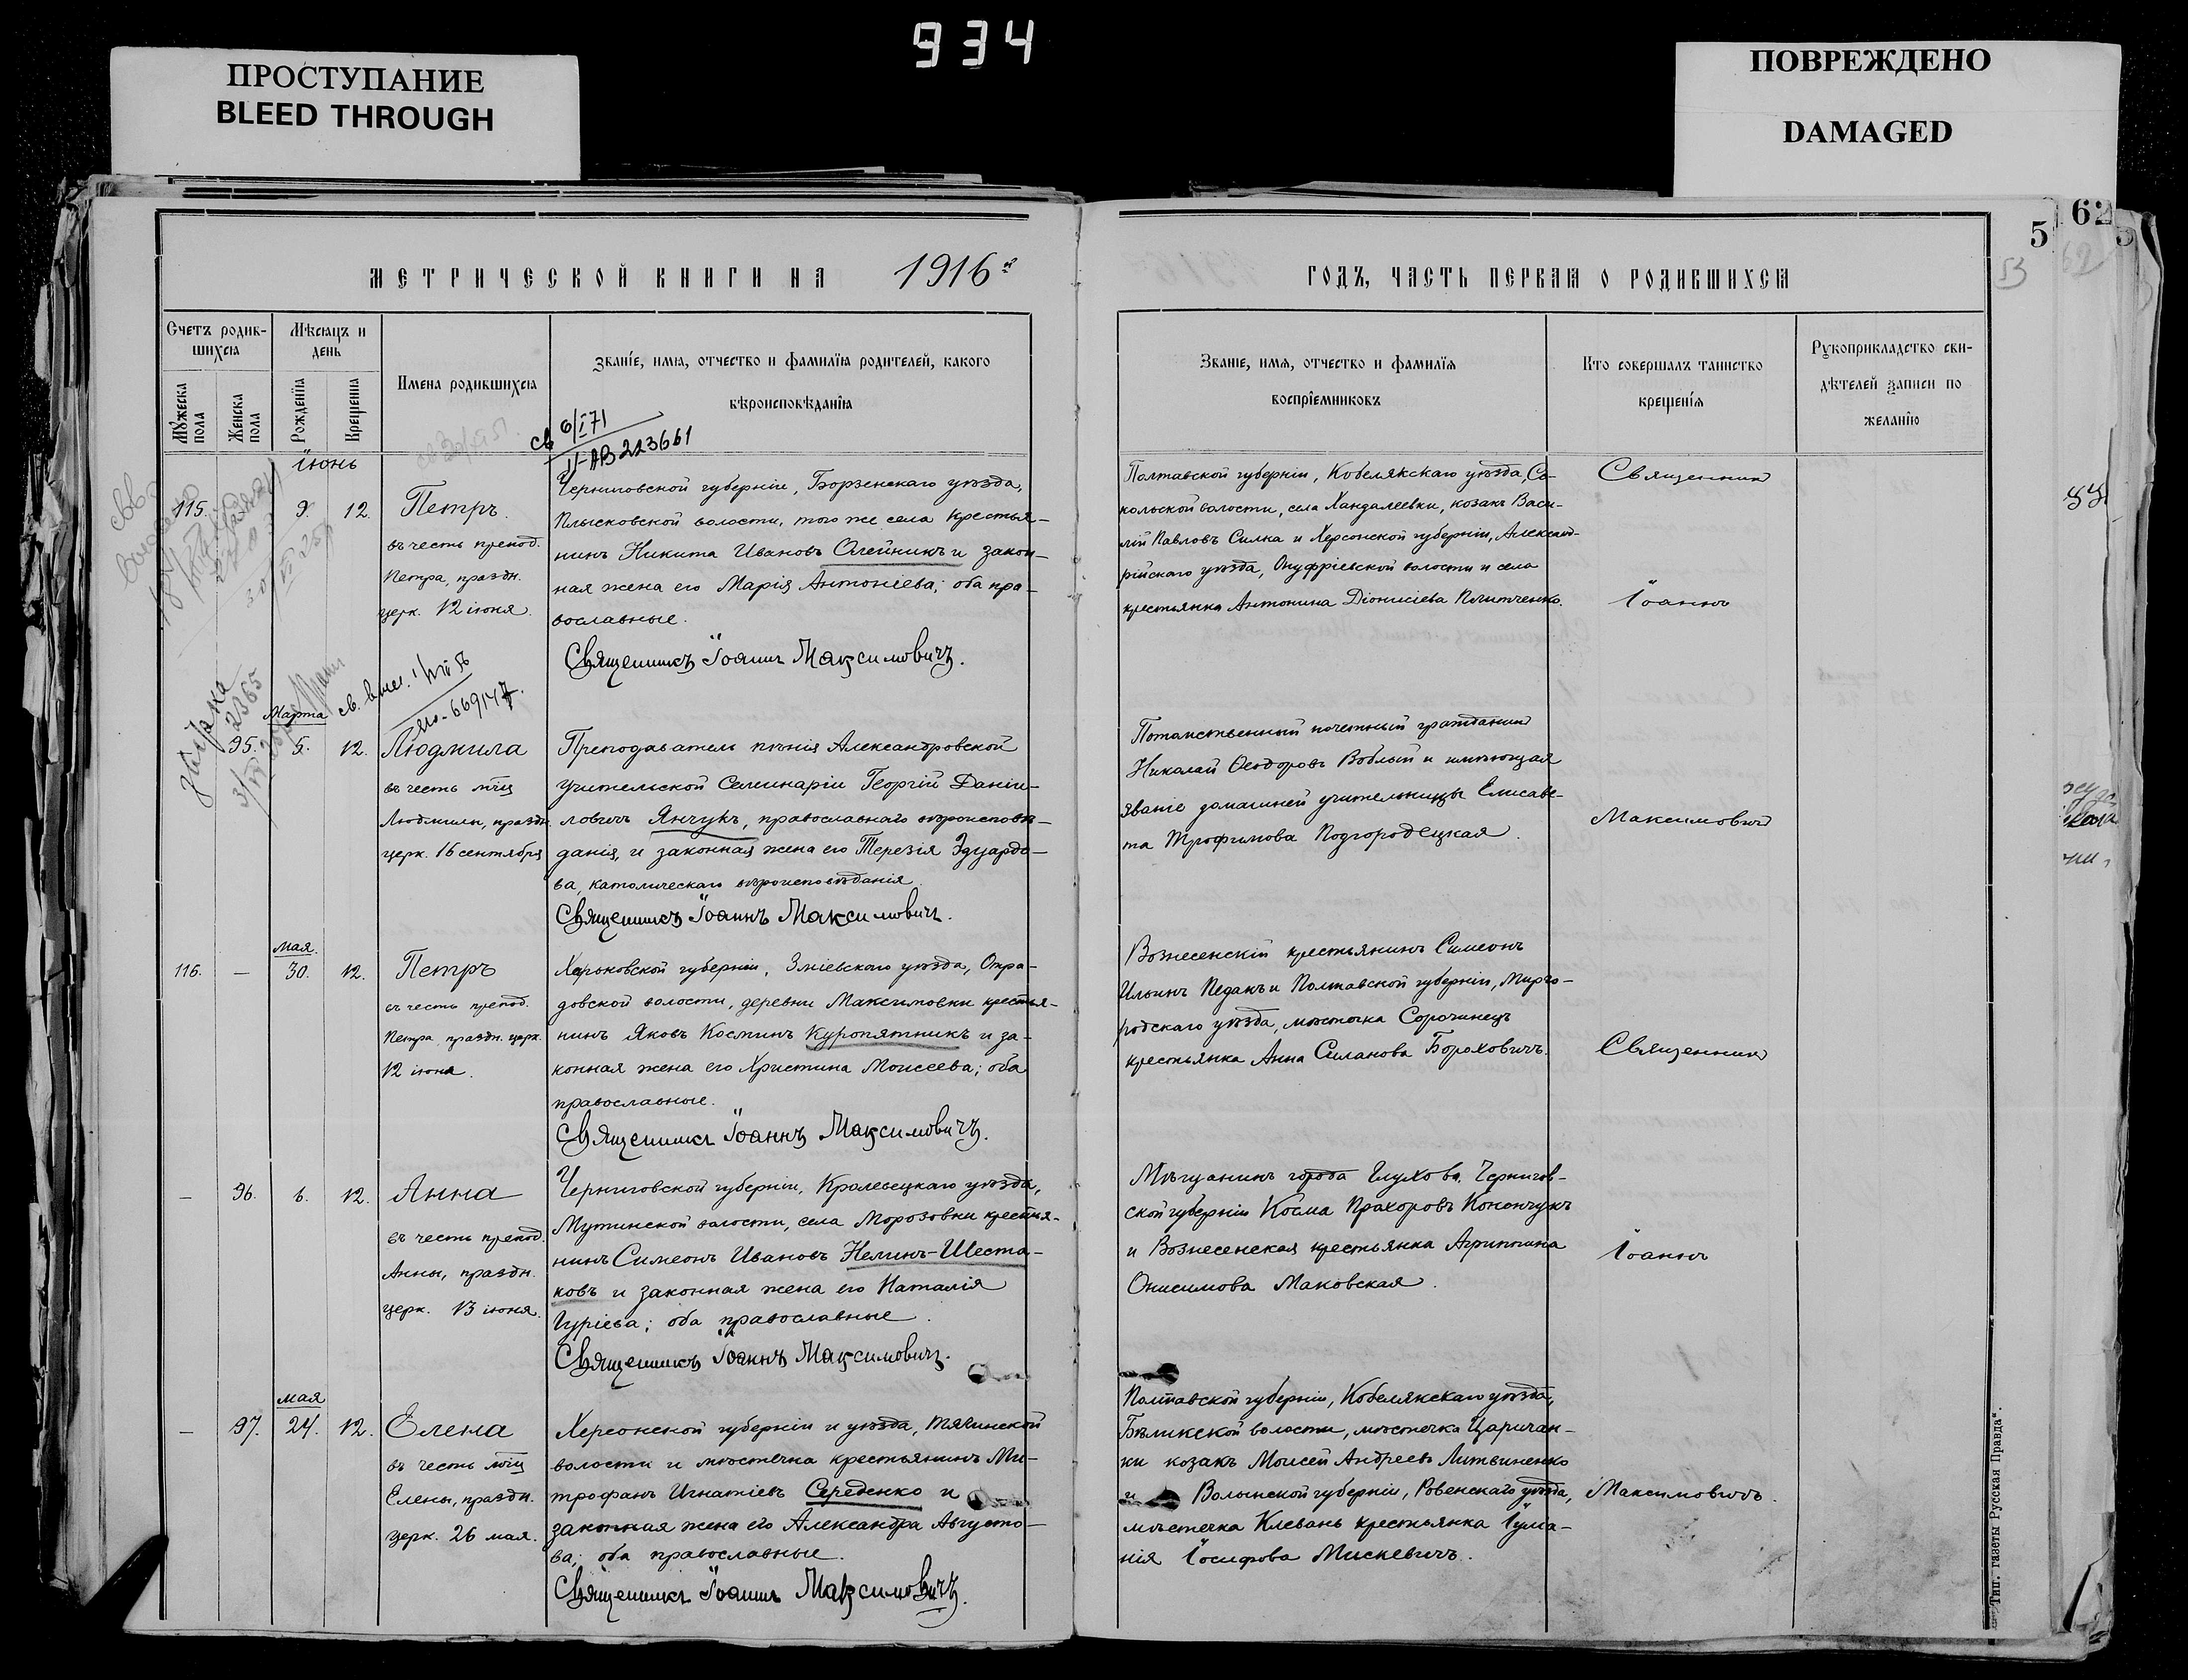 934
ПРОСТУПАНИЕ
BLEED THROUGH
ПОВРЕЖДЕНО
DAMAGED
62
5
53
62
МЕТРИЧЕСКОЙ КНИГИ НА 1916й
Счетъ родив-
шихся
Мѣсяцъ и
день
Мужеска
пола
Женска
пола
Рожденія
Крещенія
Имена родившихся
Званіе, имя, отчество и фамилія родителей, какого
вѣроисповѣданія
св 6/I 71
II-АВ 223661
Іюнь
115. 9. 12.
Петръ
въ честь препод.
Петра, праздн.
церк. 12 іюня.
Черниговской губерніи, Борзенскаго уѣзда,
Плысковской волости, того же села крестья-
нинъ Никита Ивановъ Олейникъ и закон-
ная жена его Марія Антоніева; оба пра-
вославные.
Священникъ Іоаннъ Максимовичъ.
Марта
95. 5. 12.
Людмила
въ честь мчц
Людмилы, праздн.
церк. 16 сентября
Преподаватель пѣнія Александровской
учительской Семинаріи Георгій Даніи-
ловичъ Янчукъ, православнаго вѣроисповѣ-
данія, и законная жена его Терезія Эдуардо-
ва, католическаго вѣроисповѣданія.
Священникъ Іоаннъ Максимовичъ.
Мая
116. — 30. 12.
Петръ
въ честь препод.
Петра, праздн. церк.
12 іюня.
Харьковской губерніи, Зміевскаго уѣзда, Отра-
довской волости, деревни Максимовки крестья-
нинъ Яковъ Косминъ Куропятникъ и за-
конная жена его Христина Моисеева; оба
православные.
Священникъ Іоаннъ Максимовичъ.
— 96. 6. 12.
Анна
въ честь препод.
Анны, праздн.
церк. 13 іюня.
Черниговской губерніи, Кролевецкаго уѣзда,
Мутинской волости, села Морозовки крестья-
нинъ Симеонъ Ивановъ Нелинъ-Шеста-
ковъ и законная жена его Наталія
Гуріева; оба православные.
Священникъ Іоаннъ Максимовичъ.
мая
— 97. 24. 12.
Елена
въ честь мчц
Елены, праздн.
церк. 26 мая.
Херсонской губерніи и уѣзда, Тягинской
волости и мѣстечка крестьянинъ Ми-
трофанъ Игнатіевъ Середенко и
законная жена его Александра Августо-
ва; оба православные.
Священникъ Іоаннъ Максимовичъ.
ГОДЪ, ЧАСТЬ ПЕРВАЯ О РОДИВШИХСЯ
Званіе, имя, отчество и фамилія
воспріемниковъ
Кто совершалъ таинство
крещенія
Рукоприкладство сви-
дѣтелей записи по
желанію
Полтавской губерніи, Кобелякскаго уѣзда, Со-
кольской волости, села Хандалеевки, козакъ Васи-
лій Павловъ Силка и Херсонской губерніи, Александ-
рійскаго уѣзда, Онуфріевской волости и села
крестьянка Антонина Діонисіева Плитченко.
Священникъ
Іоаннъ
Потомственный почетный гражданинъ
Николай Ѳеодоровъ Воблый и имѣющая
званіе домашней учительницы Елисаве-
та Трофимова Подгородецкая.
Максимовичъ
Вознесенскій крестьянинъ Симеонъ
Ильинъ Педакъ и Полтавской губерніи, Мирго-
родскаго уѣзда, мѣстечка Сорочинецъ
крестьянка Анна Силанова Бороховичъ.
Священникъ
Мѣщанинъ города Глухова, Чернигов-
ской губерніи Косма Прохоровъ Конончукъ
и Вознесенская крестьянка Агриппина
Онисимова Маковская.
Іоаннъ
Полтавской губерніи, Кобелякскаго уѣзда,
Бѣликской волости, мѣстечка Царичан-
ки козакъ Моисей Андреевъ Литвиненко
и Волынской губерніи, Ровенскаго уѣзда,
мѣстечка Клевань крестьянка Іулiа-
нія Іосифова Мискевичъ.
Максимовичъ.
Тип. газеты „Русская Правда“.